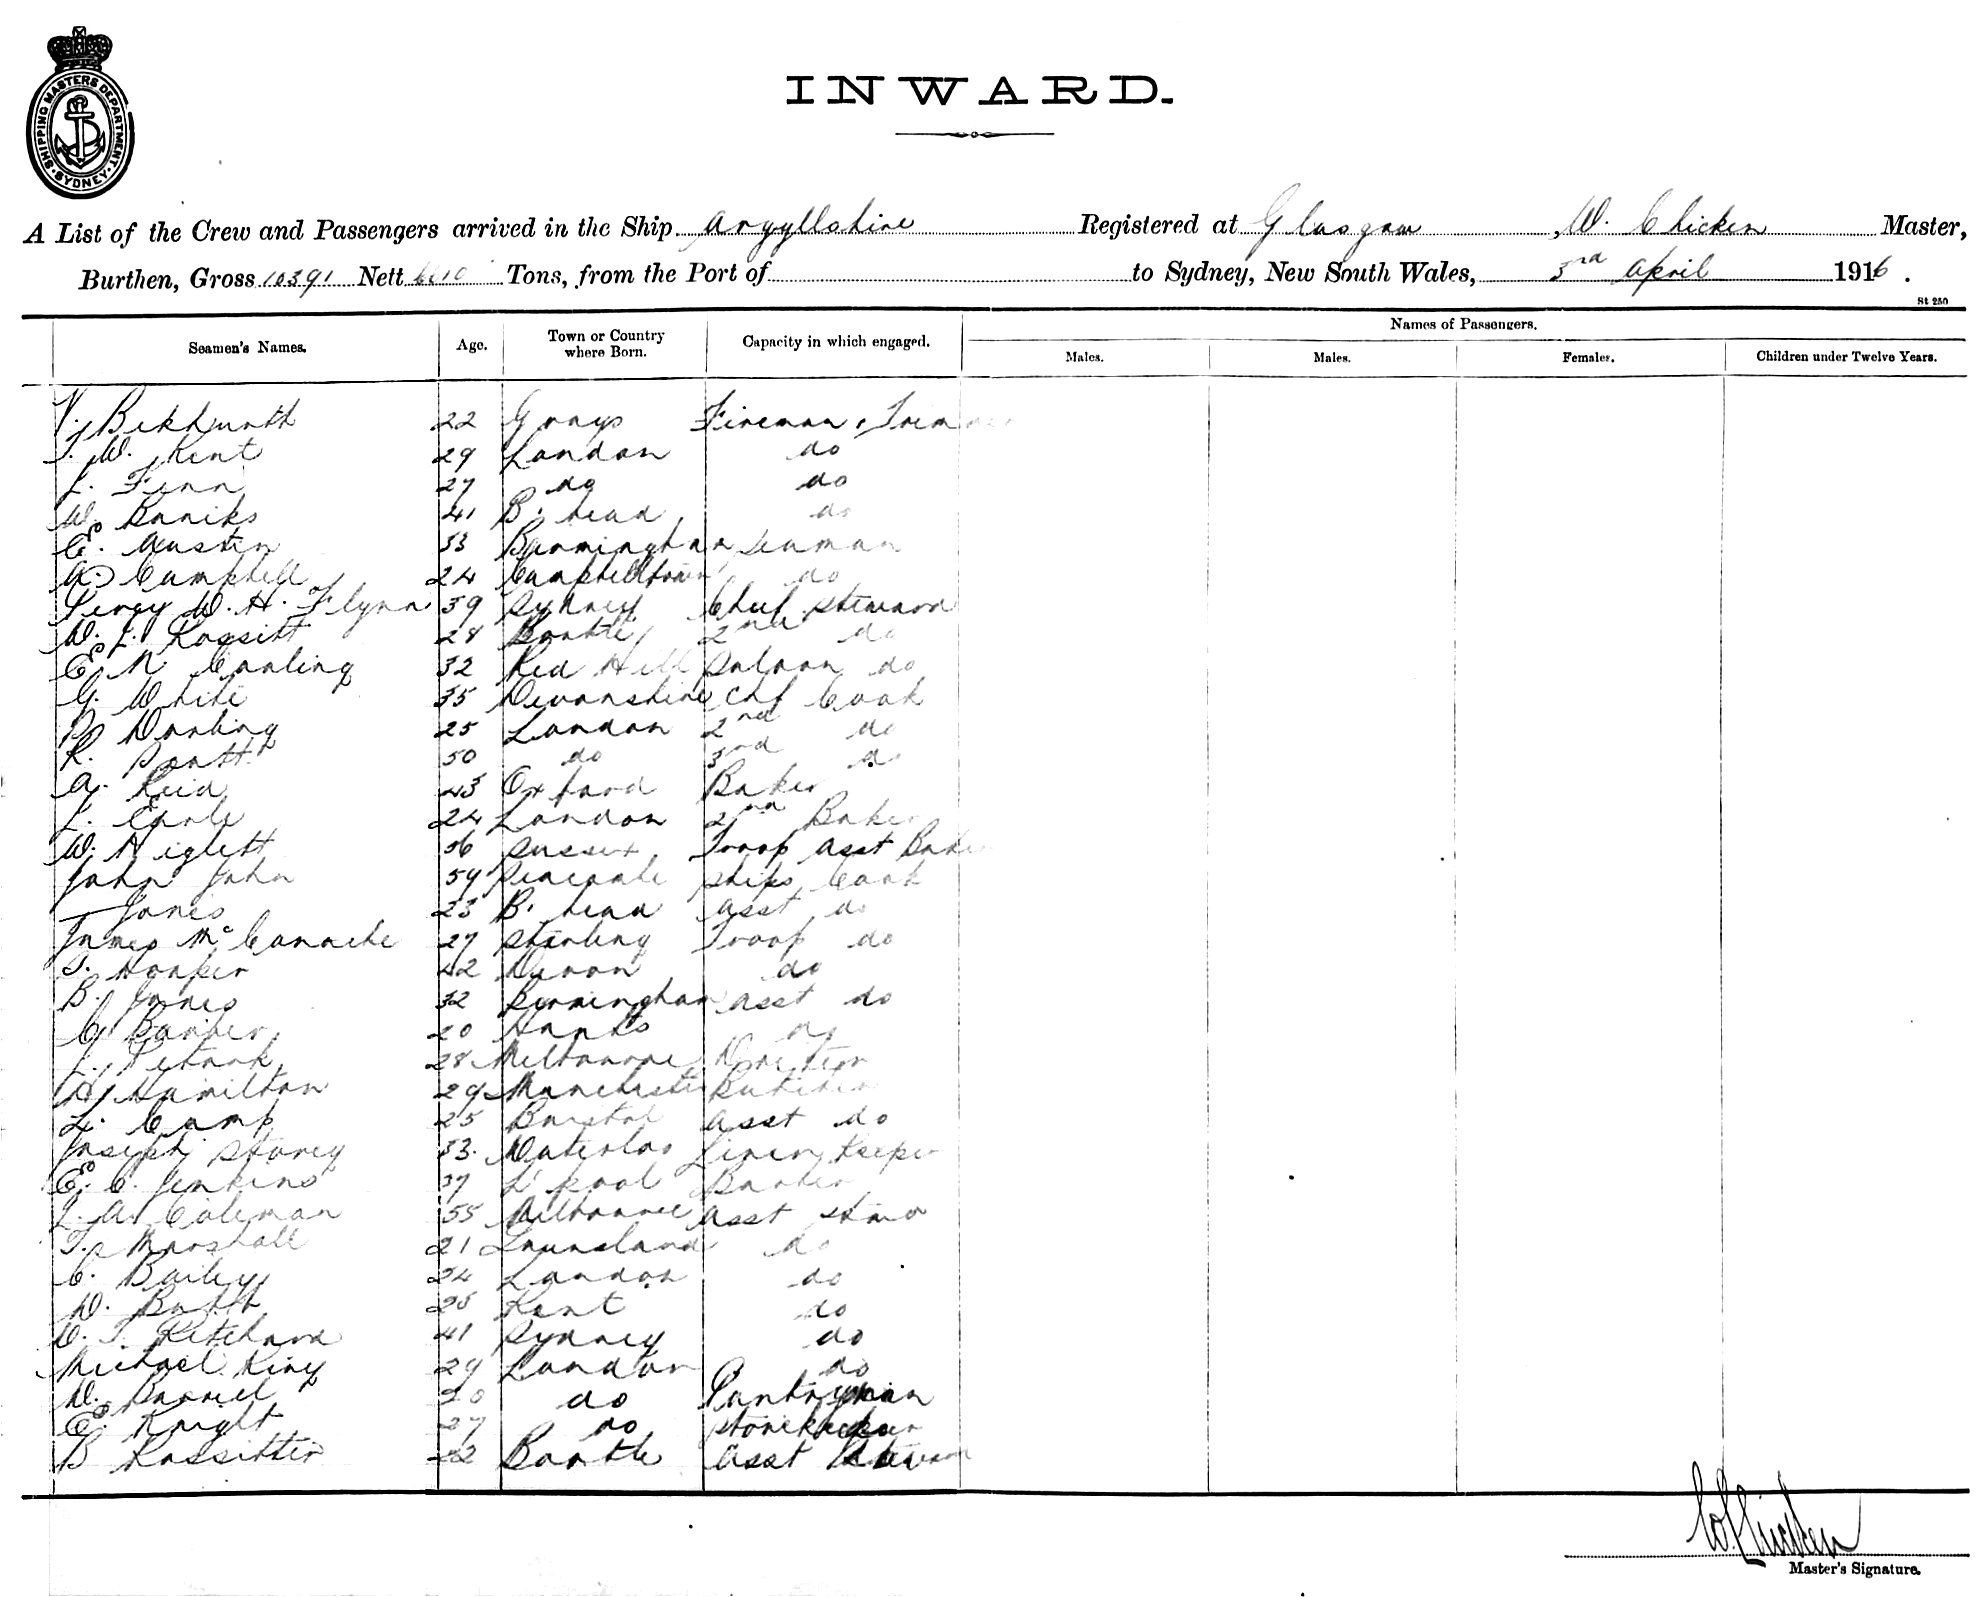 SHIPPING MASTERS DEPARTMENT · SYDNEY ·
INWARD.
A List of the Crew and Passengers arrived in the Ship Argyllshire Registered at Glasgow, W. Chicken Master,
Burthen, Gross 10391 Nett Tons, from the Port of to Sydney, New South Wales, 3rd April 1916.
St 250
Seamen's Names. Age. Town or Country where Born. Capacity in which engaged. Names of Passengers.
Males. Males. Females. Children under Twelve Years.
22 Grays Fireman & Trimmer
J. W. Kent 29 London do
L. Finn 27 do do
W. 41 B. head do
E. Austin 33 Birmingham Seaman
A. Campbell 24 Campbelltown do
Percy W. H. Flynn 39 Sydney Chief Steward
W. L. Rossitt 28 Bootle 2nd do
E. N. Carling 32 Red Hill Saloon do
G. White 35 Devonshire Chf Cook
P. Darling 25 London 2nd do
R. Pratt 50 do 3rd do
A. Reid 43 Oxford Baker
L. Earle 24 London 2nd Baker
W. Higlett 36 Sussex Troop Asst Baker
John John 59 Ships Cook
Jones 23 B. head Asst do
James Mc 27 Stirling Troop do
T. Hooper 42 Devon do
B. Jones 32 Birmingham Asst do
C. Barber 20 Hants do
L. 28 Melbourne
H. Hamilton 29 Manchester Butcher
L. Camp 25 Bristol Asst do
Joseph Storey 33 Waterloo Linen Keeper
E. C. Jenkins 37 L'pool
L. A. Coleman 55 Melbourne Asst Stwd
T. Marshall 21 Queensland do
C. Bailey 24 London do
W. Butt 25 Kent do
D. T. Pritchard 41 Sydney do
Michael King 29 London do
W. 20 do Pantryman
E. Knight 27 do Storekeeper
B Rossitter 22 Bootle Asst Steward
W. Chicken
Master's Signature.